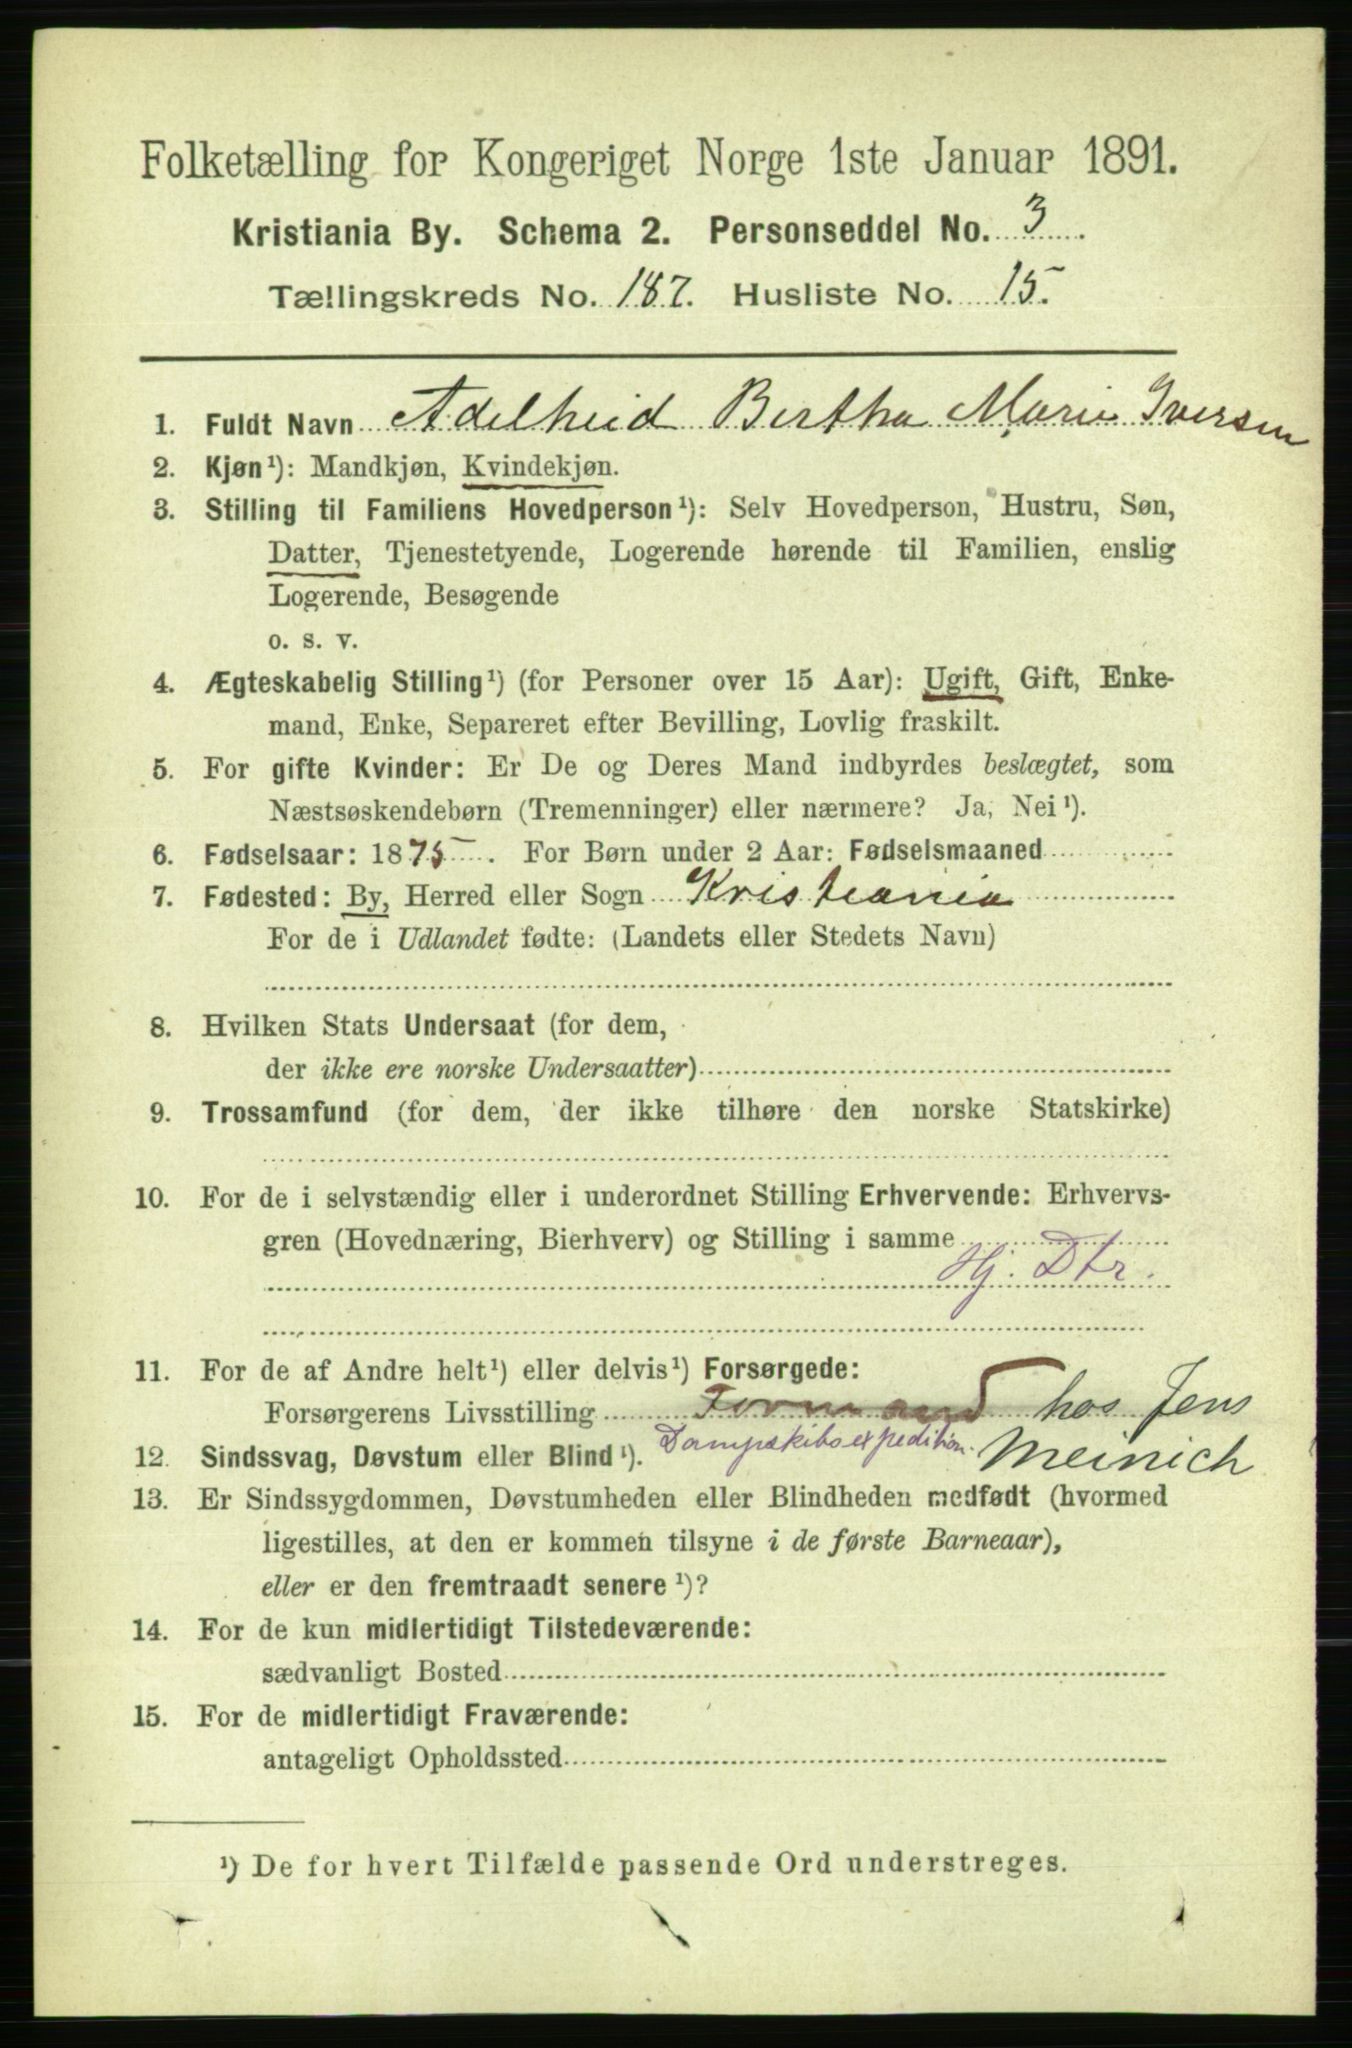 Folketælling for Kongeriget Norge 1ste Januar 1891.
Kristiania By. Schema 2. Personseddel No. 3.
Tællingskreds No. 187. Husliste No. 15.
1. Fuldt Navn Adelheid Bertha Marie Iversen
2. Kjøn¹): Mandkjøn, Kvindekjøn.
3. Stilling til Familiens Hovedperson¹): Selv Hovedperson, Hustru, Søn,
Datter, Tjenestetyende, Logerende hørende til Familien, enslig
Logerende, Besøgende
o. s. v.
4. Ægteskabelig Stilling¹) (for Personer over 15 Aar): Ugift, Gift, Enke-
mand, Enke, Separeret efter Bevilling, Lovlig fraskilt.
5. For gifte Kvinder: Er De og Deres Mand indbyrdes beslægtet, som
Næstsøskendebørn (Tremenninger) eller nærmere? Ja, Nei¹).
6. Fødselsaar: 1875. For Børn under 2 Aar: Fødselsmaaned
7. Fødested: By, Herred eller Sogn Kristiania
For de i Udlandet fødte: (Landets eller Stedets Navn)
8. Hvilken Stats Undersaat (for dem,
der ikke ere norske Undersaatter)
9. Trossamfund (for dem, der ikke tilhøre den norske Statskirke)
10. For de i selvstændig eller i underordnet Stilling Erhvervende: Erhvervs-
gren (Hovednæring, Bierhverv) og Stilling i samme
Hj. Dtr.
11. For de af Andre helt¹) eller delvis¹) Forsørgede:
Forsørgerens Livsstilling Formand hos Jens
Dampskibsexpedition. Meinich
12. Sindssvag, Døvstum eller Blind¹).
13. Er Sindssygdommen, Døvstumheden eller Blindheden medfødt (hvormed
ligestilles, at den er kommen tilsyne i de første Barneaar),
eller er den fremtraadt senere¹)?
14. For de kun midlertidigt Tilstedeværende:
sædvanligt Bosted
15. For de midlertidigt Fraværende:
antageligt Opholdssted
¹) De for hvert Tilfælde passende Ord understreges.